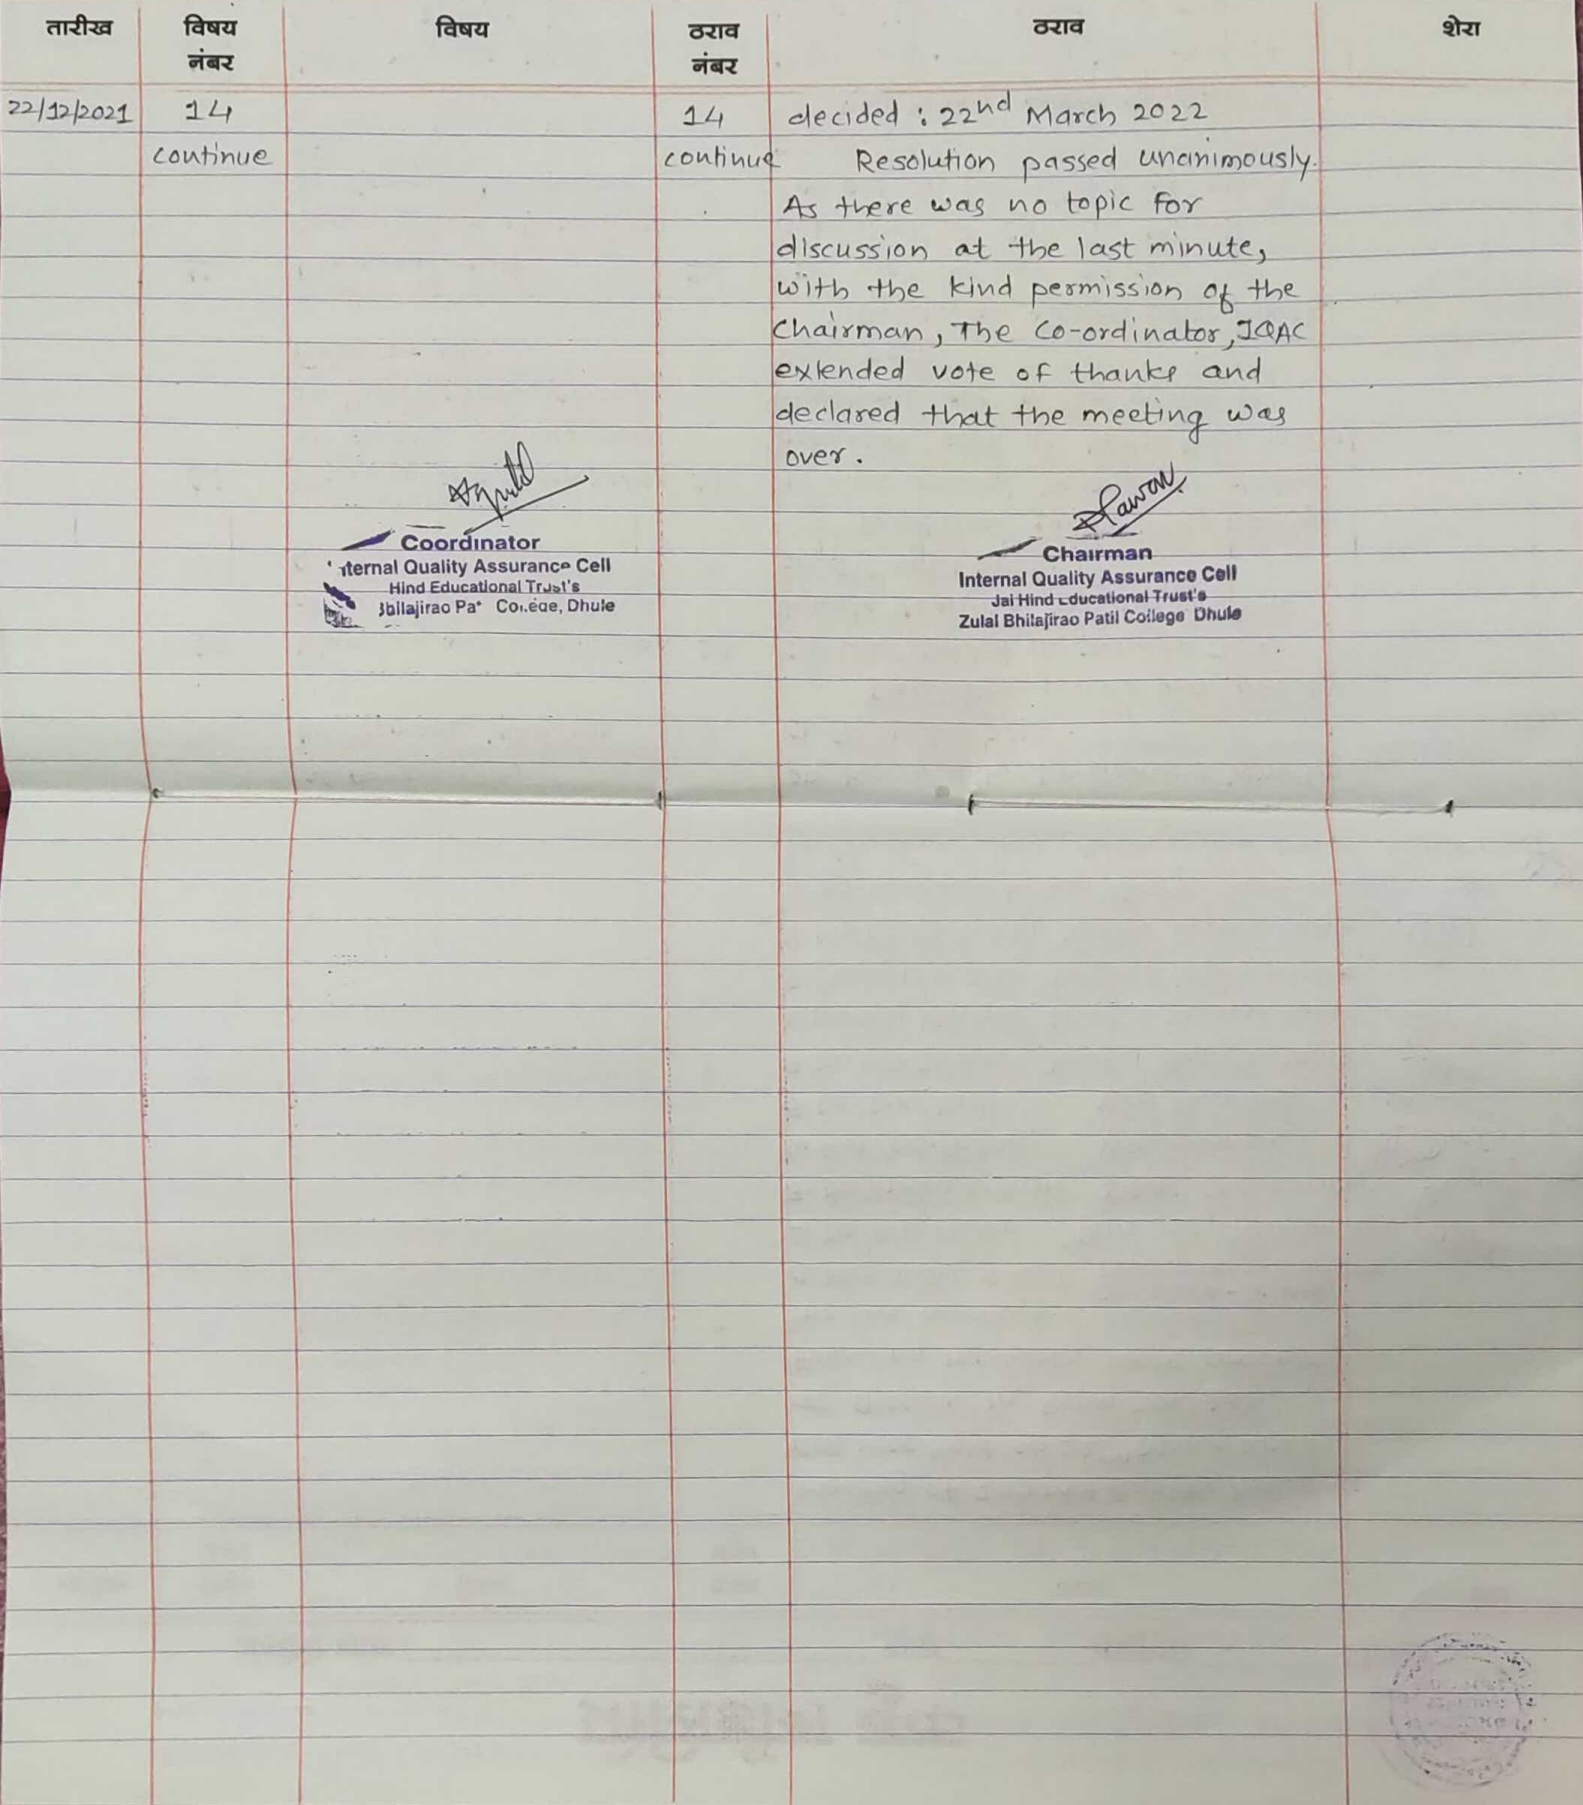 तारीख विषय विषय ठराव ठराव शेरा
नंबर नंबर
22/12/2021 14 14 decided : 22nd March 2022
continue continue Resolution passed unanimously.
As there was no topic for
discussion at the last minute,
with the kind permission of the
Chairman, The Co-ordinator, IQAC
extended vote of thanks and
declared that the meeting was
over.
Coordinator
ternal Quality Assurance Cell
Hind Educational Trust's
Dhule
Chairman
Internal Quality Assurance Cell
Jai Hind Educational Trust's
Zulal Bhilajirao Patil College Dhule